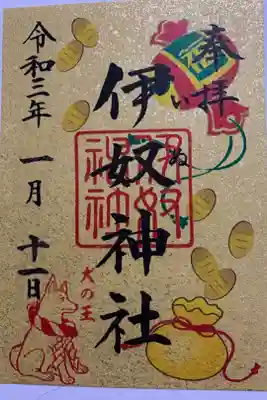 奉拝
伊奴神社
いぬ
令和三年 一月 十一日
犬の王